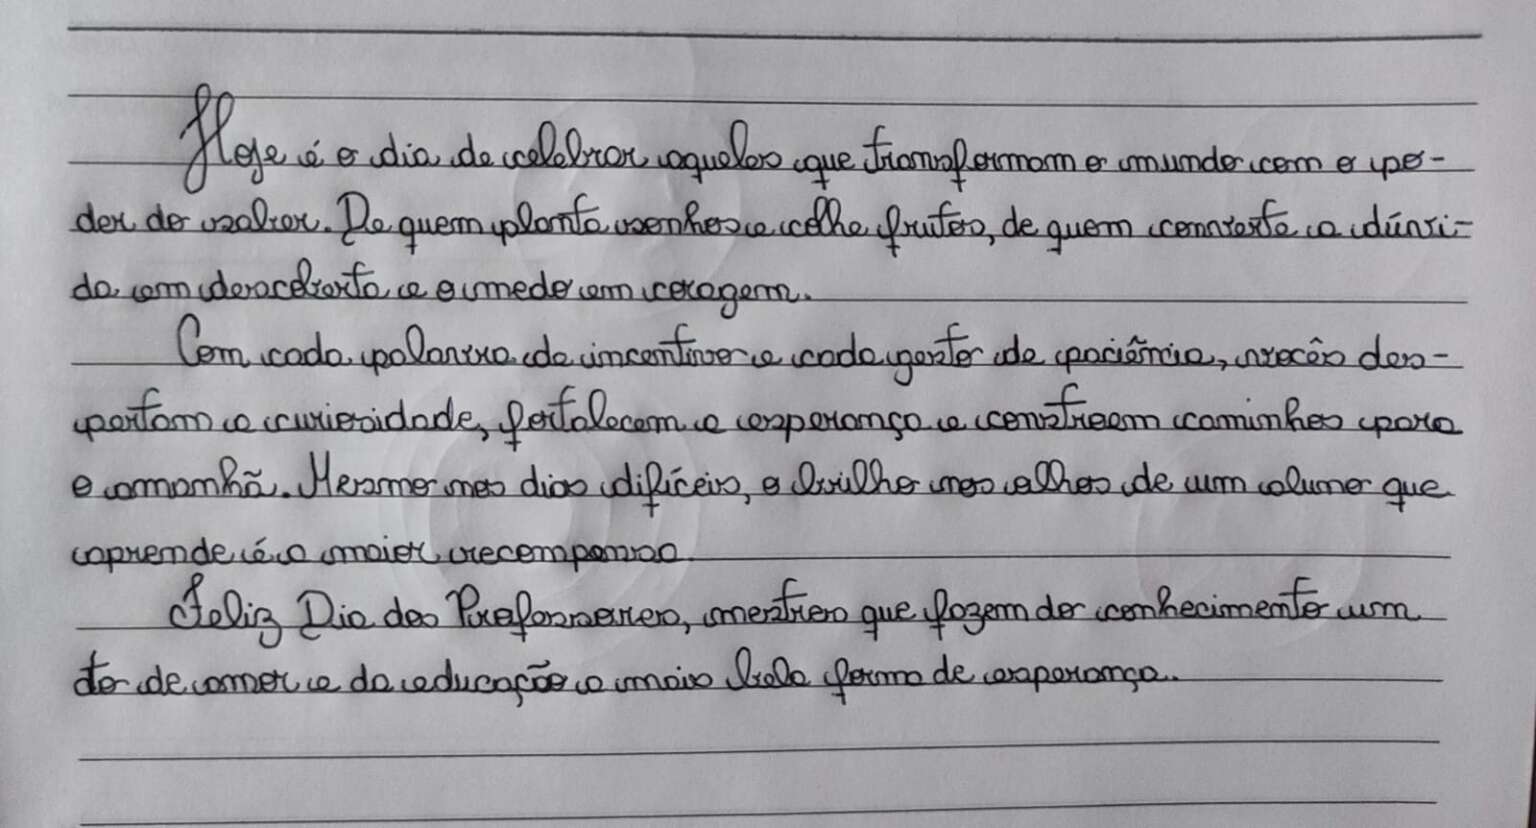 Hoje é o dia de celebrar aqueles que transformam o mundo com o po-
der do saber. De quem planta sonhos e colhe frutos, de quem converte a dúvi-
da em descoberta e o medo em coragem.
Com cada palavra de incentivo e cada gesto de paciência, vocês des-
pertam a curiosidade, fortalecem a esperança e constroem caminhos para
o amanhã. Mesmo nos dias difíceis, o brilho nos olhos de um aluno que
aprende é a maior recompensa
Feliz Dia dos Professores, mestres que fazem do conhecimento um
to de amor e da educação a mais bela forma de esperança.